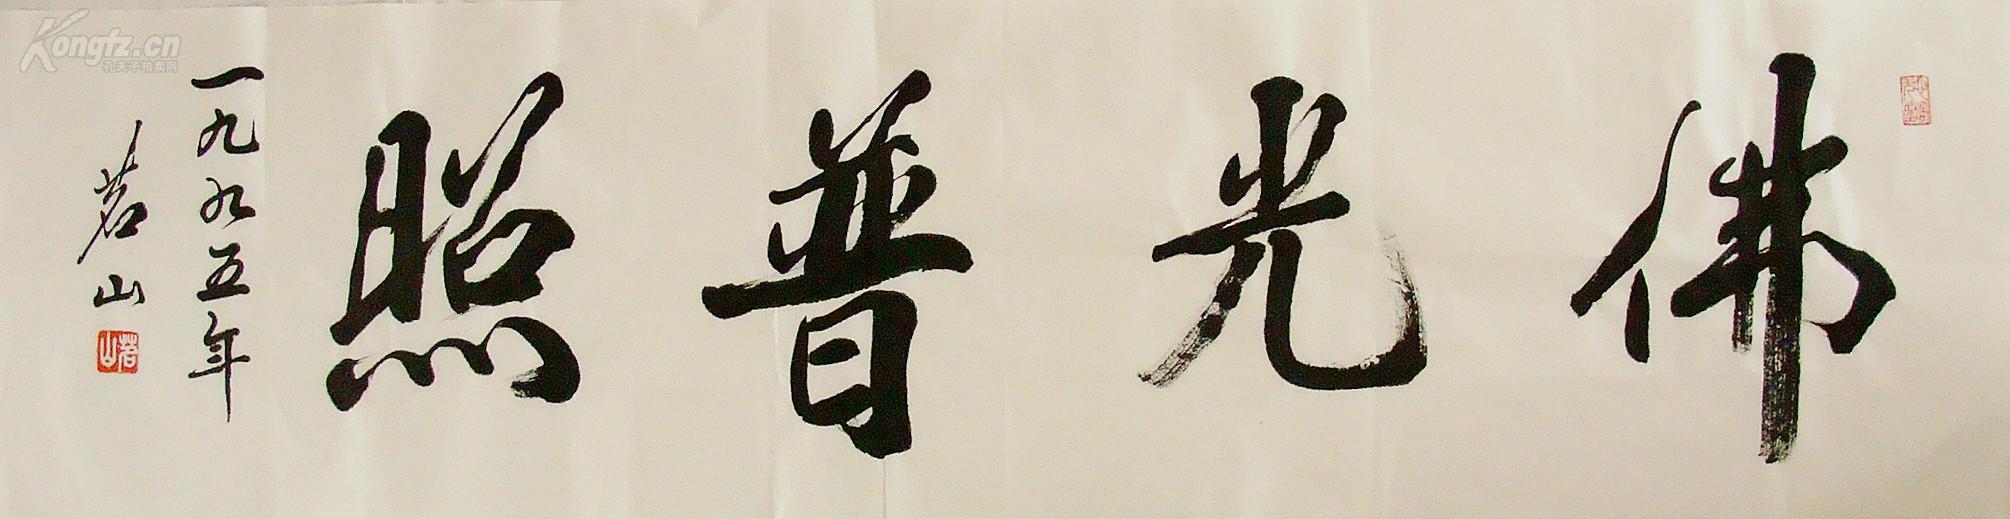 佛光普照
一九九五年
茗山
茗山
Kongfz.cn
孔夫子拍卖网